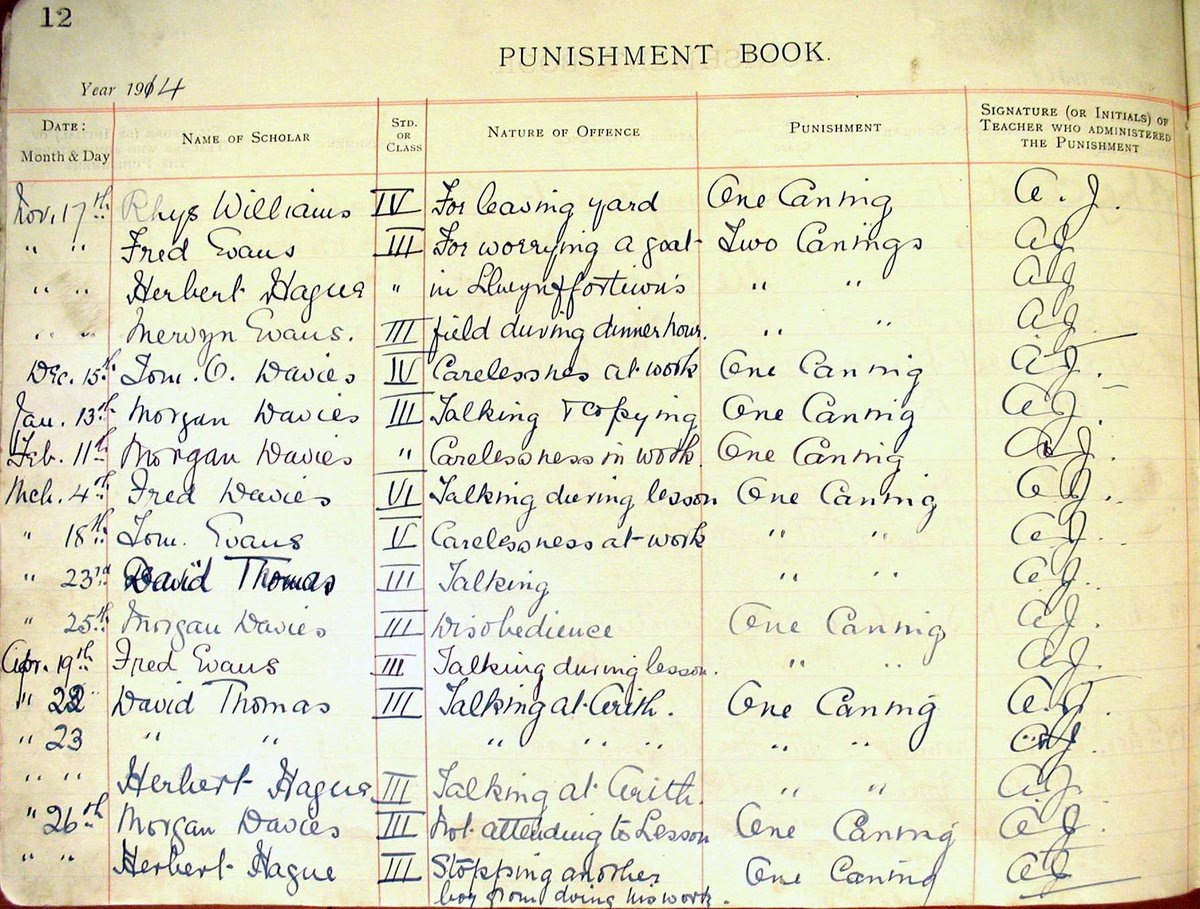 12
PUNISHMENT BOOK.
Year 1914
DATE: Month & Day NAME OF SCHOLAR STD. OR CLASS NATURE OF OFFENCE PUNISHMENT SIGNATURE (OR INITIALS) OF TEACHER WHO ADMINISTERED THE PUNISHMENT
Nov. 17th Rhys Williams IV For leaving yard One Caning A. J.
" " Fred Evans III For worrying a goat Two Canings A J
" " Herbert Hague " in " " A J
" " Mervyn Evans. III field during dinner hour. " " A J
Dec. 15th Tom. O. Davies IV Carelessnes at work One Caning A J.
Jan. 13th Morgan Davies III Talking & copying One Caning A J.
Feb. 11th Morgan Davies " Carelessness in work. One Caning A J.
Mch. 4th Fred Davies VI Talking during lesson One Caning A J.
" 18th Tom. Evans V Carelessness at work " " A J.
" 23rd David Thomas III Talking " " A J.
" 25th Morgan Davies III Disobedience One Caning A J.
Apr. 19th Fred Evans III Talking during lesson. " " A J.
" 22 David Thomas III Talking at Arith. One Caning A. J.
" 23 " " " " " " " A J.
" " Herbert Hague III Talking at Arith. " " A J.
" 26th Morgan Davies III Not attending to Lesson One Caning A J.
" " Herbert Hague III Stopping another One Caning A J
boy from doing his work.